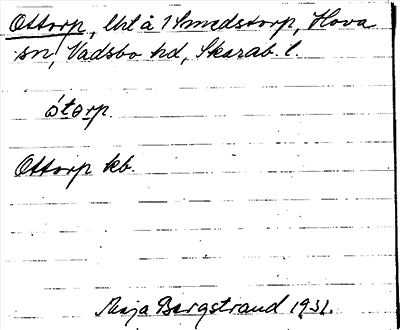 Ottorp, lht å 1 Smedstorp, Hova
sn, Vadsbo hd, Skarab. l.
ó̱to̱rp.
Ottorp kb.
Maja Bergstrand 1931.